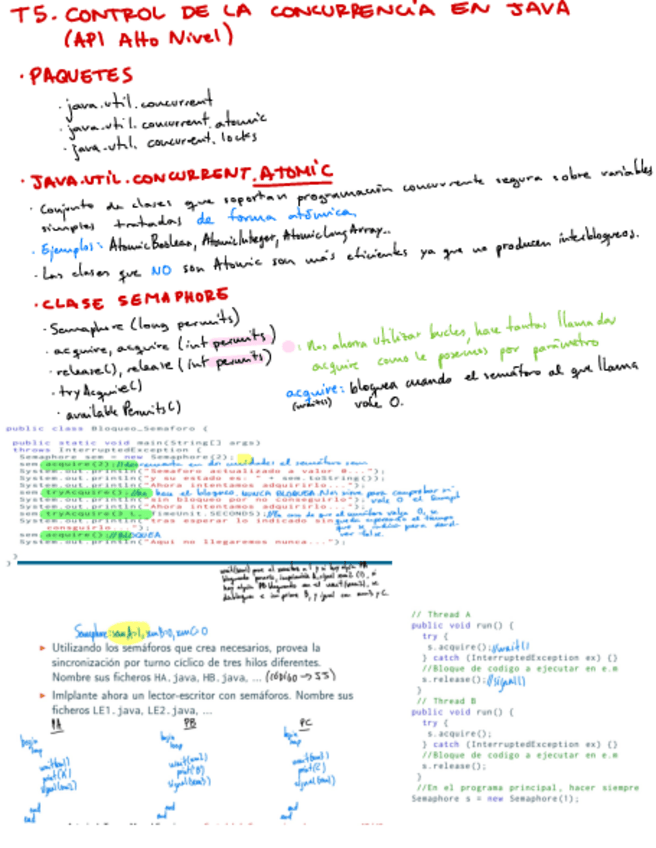 T5. CONTROL DE LA CONCURRENCIA EN JAVA
(API Alto Nivel)
· PAQUETES
· java.util.concurrent
· java.util.concurrent.atomic
· java.util.concurrent.locks
· JAVA.UTIL.CONCURRENT.ATOMIC
· Conjunto de clases que soportan programación concurrente segura sobre variables
simples tratadas de forma atómica.
· Ejemplos: AtomicBoolean, AtomicInteger, AtomicLongArray..
· Las clases que NO son Atomic son más eficientes ya que no producen interbloqueos.
· CLASE SEMAPHORE
· Semaphore (long permits)
· acquire, acquire (int permits)
· release(), release (int permits)
· tryAcquire()
· availablePermits()
: Nos ahorra utilizar bucles, hace tantas llamadas
acquire como le pasemos por parámetro
acquire: bloquea cuando el semáforo al que llama
vale 0.
public class Bloqueo_Semaforo {
public static void main(String[] args)
throws InterruptedException {
Semaphore sem = new Semaphore(2);
sem.acquire(2);
System.out.println("Semaforo actualizado a valor 0...");
System.out.println("y su estado es: " + sem.toString());
System.out.println("Ahora intentamos adquirirlo...");
sem.tryAcquire();
System.out.println("sin bloqueo por no conseguirlo");
System.out.println("Ahora intentamos adquirirlo...");
sem.tryAcquire(3 L, TimeUnit.SECONDS);
System.out.println("tras esperar lo indicado sin
conseguirlo...");
sem.acquire(); //BLOQUEA
System.out.println("Aqui no llegaremos nunca...");
}
}
Semaphore: semA=1, semB=0, semC=0
▶ Utilizando los semáforos que crea necesarios, provea la
sincronización por turno cíclico de tres hilos diferentes.
Nombre sus ficheros HA.java, HB.java, ... (CÓDIGO → S5)
▶ Imlplante ahora un lector-escritor con semáforos. Nombre sus
ficheros LE1.java, LE2.java, ...
PA PB PC
begin begin begin
loop loop loop
print(B) print(C)
end end end
end end end
// Thread A
public void run() {
try {
s.acquire(); //wait()
} catch (InterruptedException ex) {}
//Bloque de codigo a ejecutar en e.m
s.release(); //signal()
}
// Thread B
public void run() {
try {
s.acquire();
} catch (InterruptedException ex) {}
//Bloque de codigo a ejecutar en e.m
s.release();
}
//En el programa principal, hacer siempre
Semaphore s = new Semaphore(1);